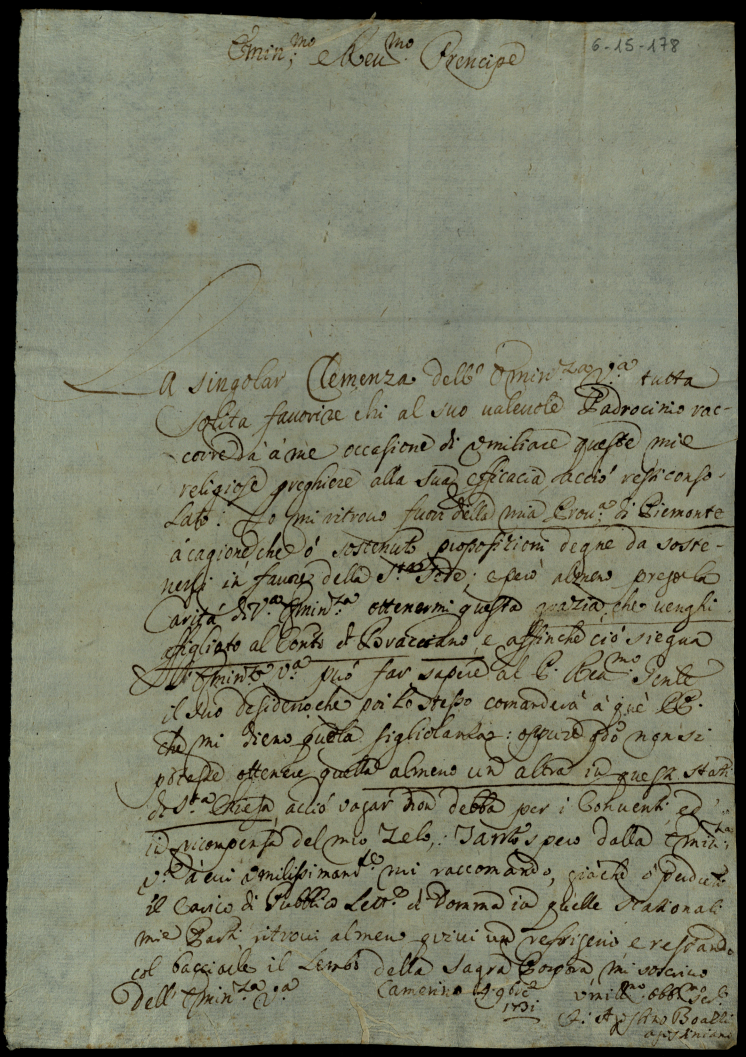 6-15-178
Emin:mo e Reu.mo Prencipe
La singolar Clemenza dell' Emin.za V.a tutta
solita favorire chi al suo valevole Padrocinio rac-
corre dà à me occasione di umiliare queste mie
religiose preghiere alla sua efficacia acciò resti conso-
lato: Io mi ritrovo fuori della mia Prou.a di Piemonte
à cagione che ò sostenuto proposizioni degne da soste-
nersi in favore della S.ta Sede; e però almeno prego la
Carità di V.a Emin.za ottenermi questa grazia, che venghi
affigliato al Conto di Bracciano, e affinche ciò siegua
l' Emin.za V.a può far sapere al P. Reu.mo Gente
il suo desiderio, che poi lo stesso comanderà à què PP.
che mi dieno quella figliolanza: oppure qdo non si
potesse ottenere quella almeno un altra in questi stati
di S.ta Chiesa, acciò vagar non debba per i Conventi, ed
in ricompensa del mio Zelo,: Tanto spero dalla Emin:za
V.a à cui umilissimam.te mi raccomando, giache ò perduto
il Carico di Pubblico Lett.e di Domma in quelle
mie Parti, ritrovi almeno quivi un refrigerio, e restando
col bacciarle il Lembo della Sagra Porpora, mi soscrivo
dell' Emin.za V.a Camerino 9bre
1731
umill.mo obbl.mo
F. Agostino Boalli
agostiniano